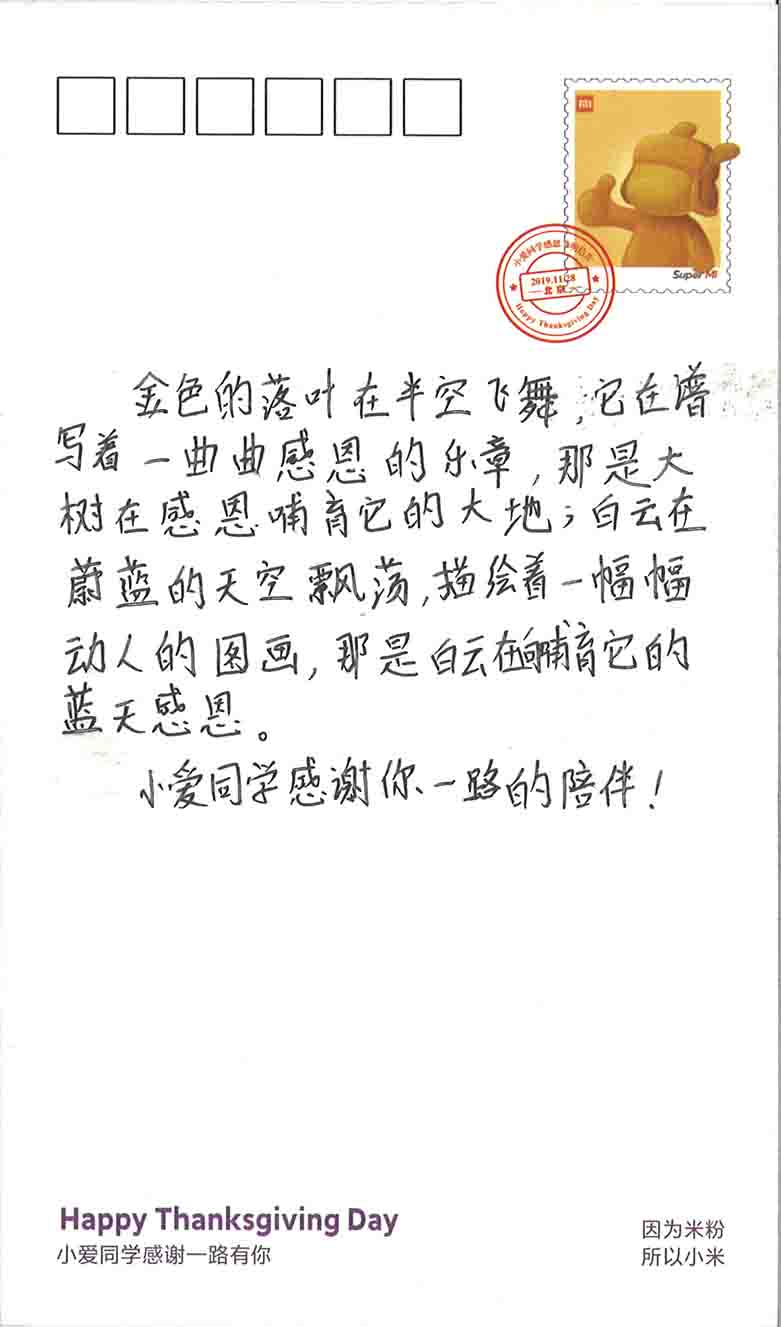 小爱同学感恩
2019.11.28
北京
Happy Thanksgiving Day
Super MI
金色的落叶在半空飞舞,它在谱
写着一曲曲感恩的乐章,那是大
树在感恩哺育它的大地;白云在
蔚蓝的天空飘荡,描绘着一幅幅
动人的图画,那是白云在向哺育它的
蓝天感恩。
小爱同学感谢你一路的陪伴!
Happy Thanksgiving Day
小爱同学感谢一路有你
因为米粉
所以小米